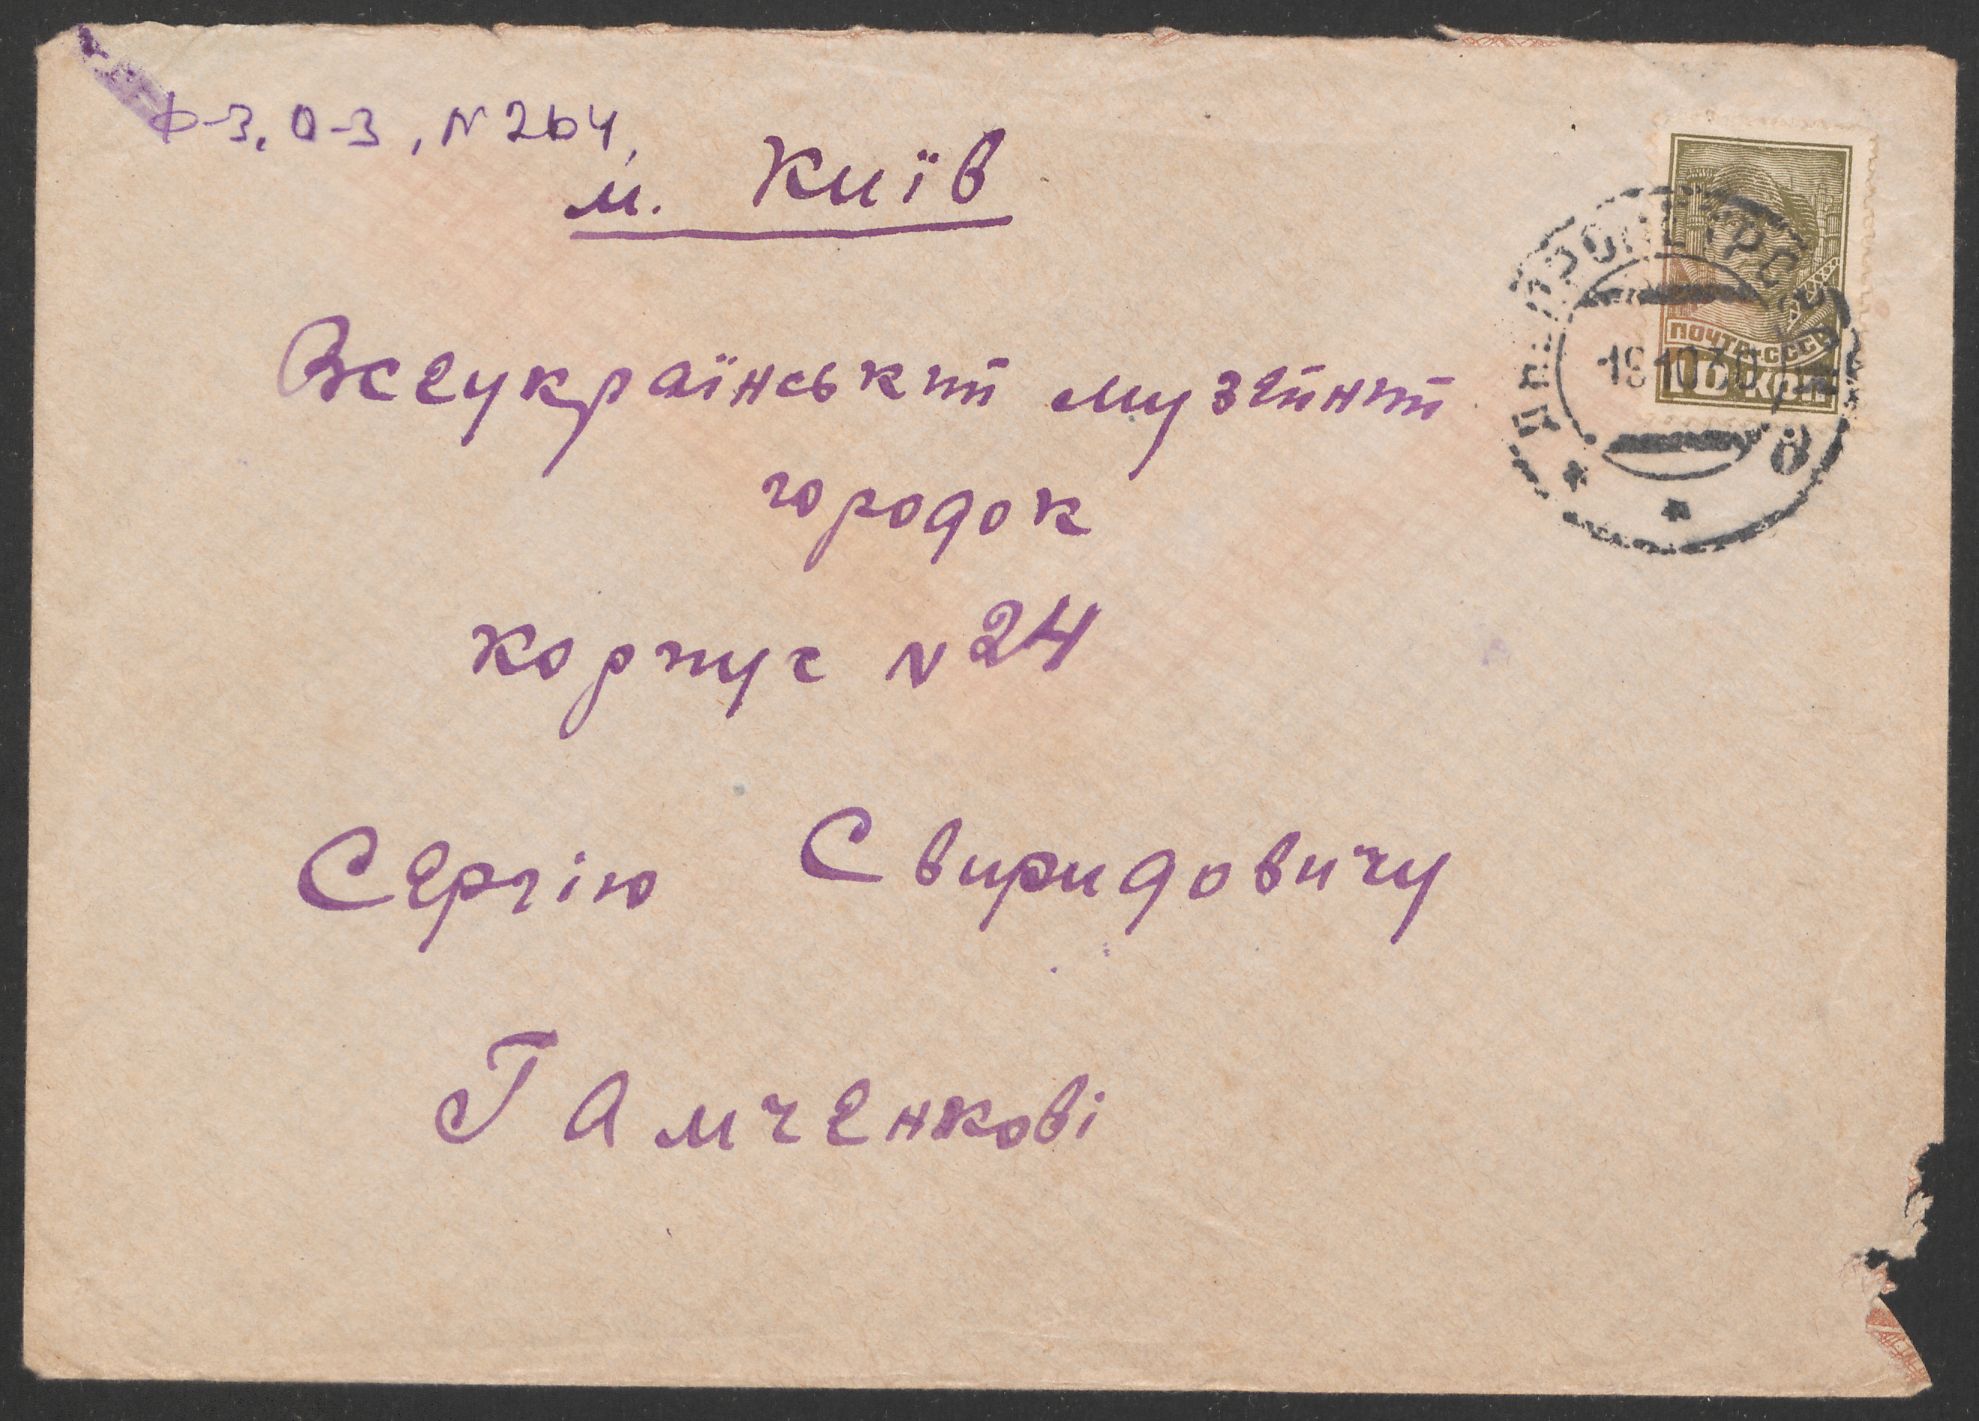 Ф-3, О-3, N 264,
м. Київ
Всеукраїнський музейний
городок
корпус N 24
Сергію Свиридовичу
Гамченкові
ПОЧТА СССР
10 КОП
19 10 30